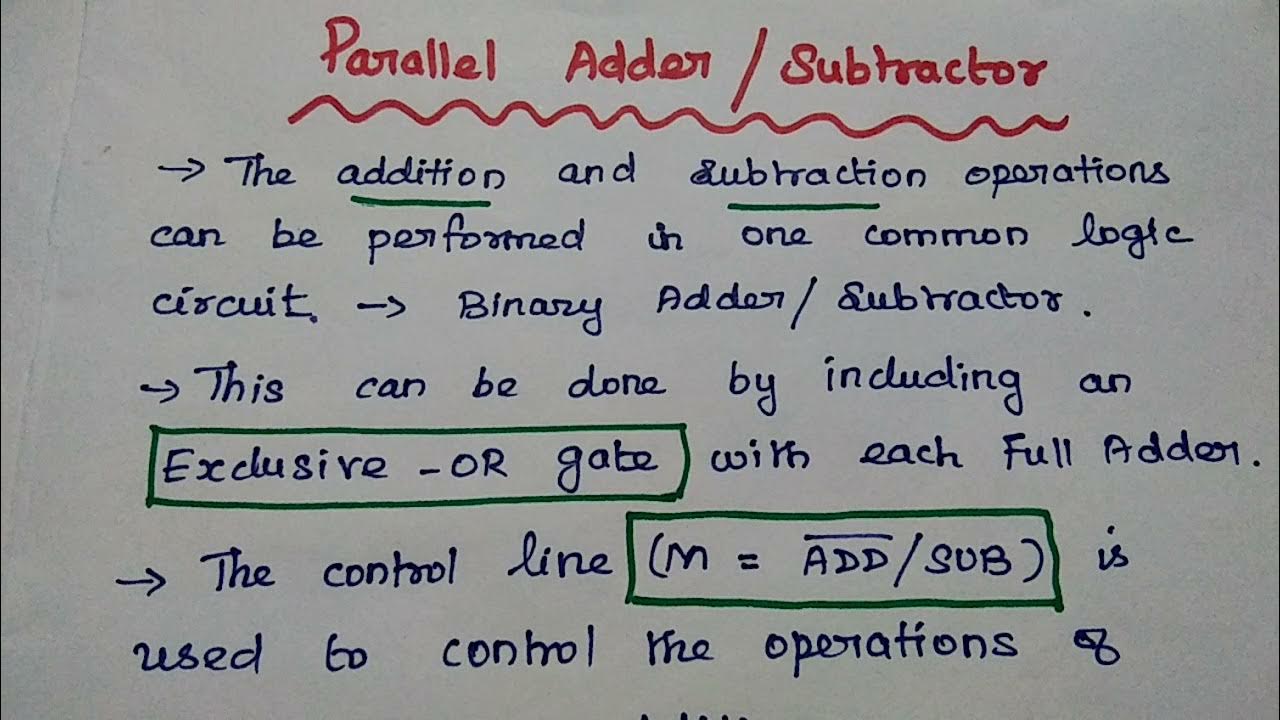 Parallel Adder / Subtractor
→ The addition and subtraction operations
can be performed in one common logic
circuit. → Binary Adder / Subtractor.
→ This can be done by including an
Exclusive - OR gate with each Full Adder.
→ The control line (M = A̅D̅D̅ / SUB) is
used to control the operations of